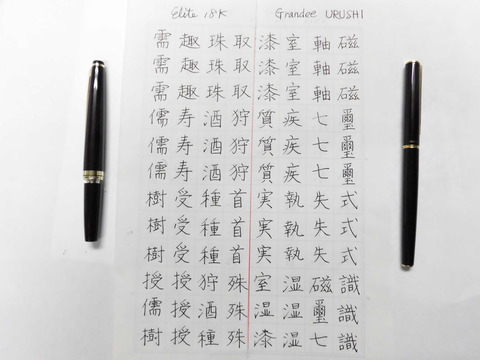 Elite 18K Grandee URUSHI
需 趣 珠 取 漆 室 軸 磁
需 趣 珠 取 漆 室 軸 磁
需 趣 珠 取 漆 室 軸 磁
儒 寿 酒 狩 質 疾 七 璽
儒 寿 酒 狩 質 疾 七 璽
儒 寿 酒 狩 質 疾 七 璽
樹 受 種 首 実 執 失 式
樹 受 種 首 実 執 失 式
樹 受 種 首 実 執 失 式
授 授 狩 殊 室 湿 磁 識
儒 授 酒 殊 湿 湿 璽 識
樹 授 種 殊 漆 湿 七 識